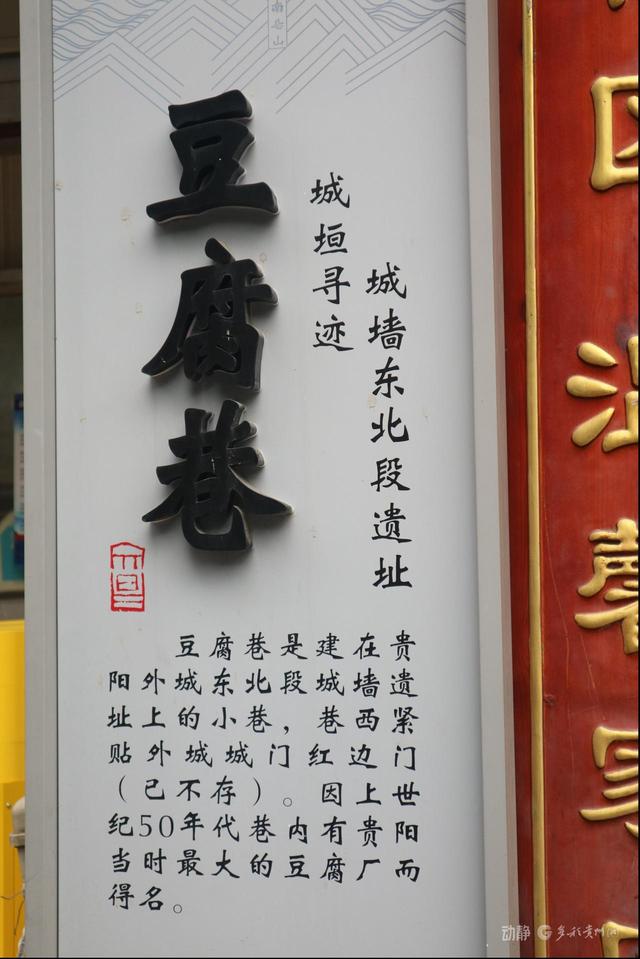 豆腐巷
城垣寻迹
城墙东北段遗址
豆腐巷是建在贵
阳外城东北段城墙遗
址上的小巷，巷西紧
贴外城城门红边门
（已不存）。因上世
纪50年代巷内有贵阳
当时最大的豆腐厂而
得名。
动静
多彩贵州网